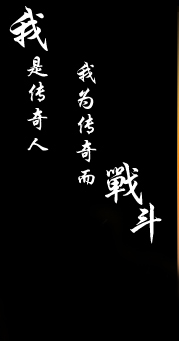 我是传奇人
我为传奇而
戰斗